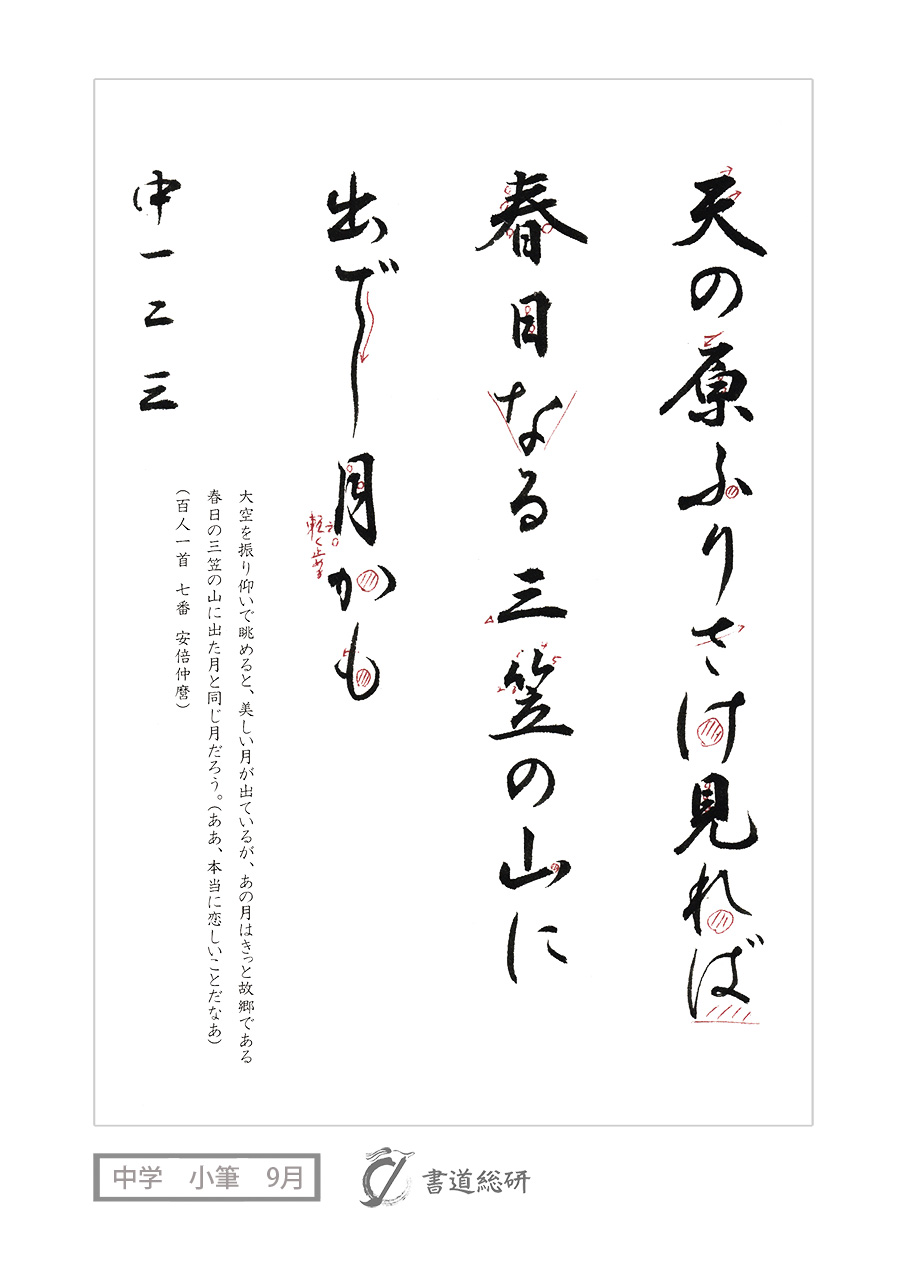 天の原ふりさけ見れば
春日なる三笠の山に
出でし月かも
軽く止める
中一二三
大空を振り仰いで眺めると、美しい月が出ているが、あの月はきっと故郷である
春日の三笠の山に出た月と同じ月だろう。(ああ、本当に恋しいことだなあ)
(百人一首 七番 安倍仲麿)
中学 小筆 9月
書道総研